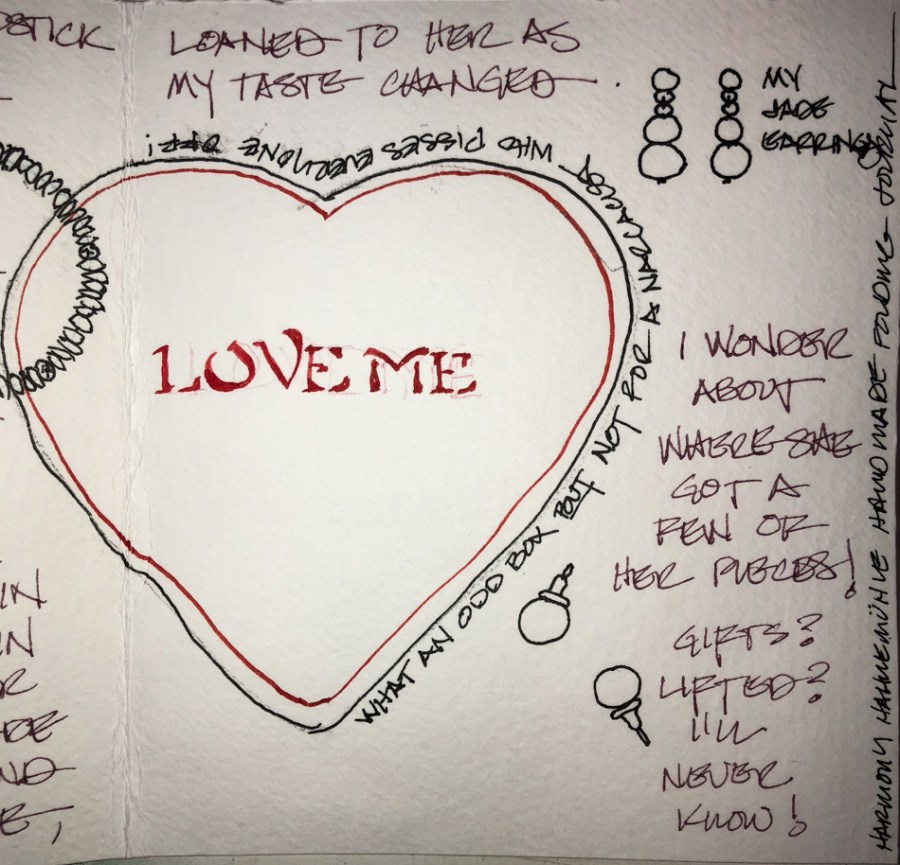 LOANED TO HER AS
MY TASTE CHANGED.
MY
JADE
EARRINGS
LOVE ME
WHAT AN ODD BOX BUT NOT FOR A NARCISSIST WHO PISSES EVERYONE OFF!
I WONDER
ABOUT
WHERE SHE
GOT A
FEW OF
HER PIECES!
GIFTS?
LIFTED?
I'LL
NEVER
KNOW!
HARMONY HAHNEMÜHLE HANDMADE FOLDING JOURNAL
STICK
IN
IN